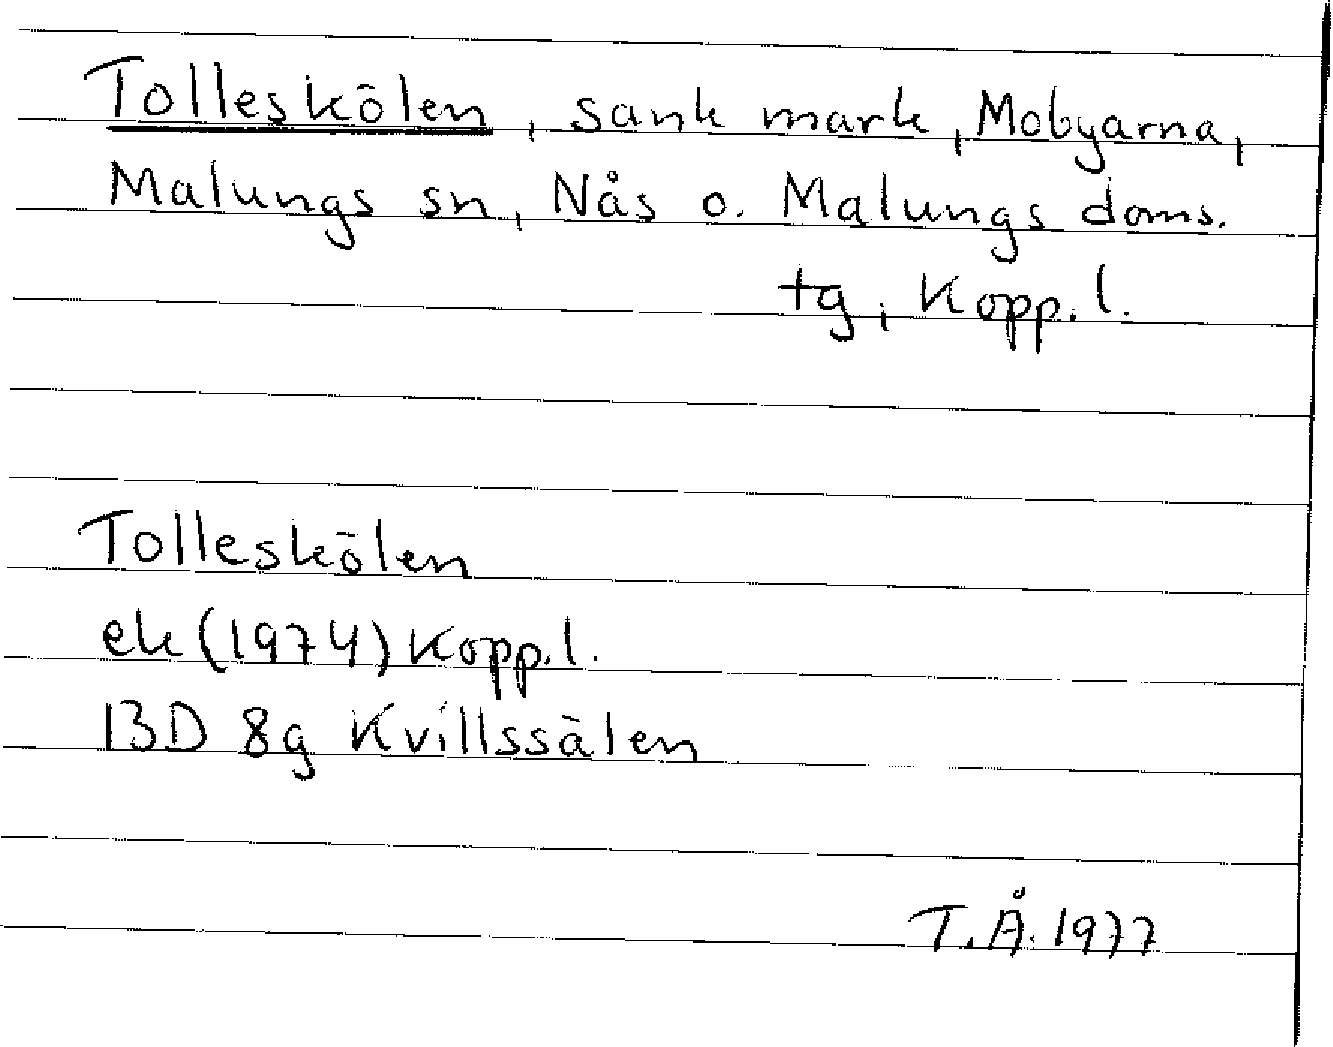 Tolleskölen, sank mark, Mobyarna,
Malungs sn, Nås o. Malungs doms.
tg, Kopp. l.
Tolleskölen
ek (1974) Kopp. l.
13D 8g Kvillssälen
T.Å. 1977